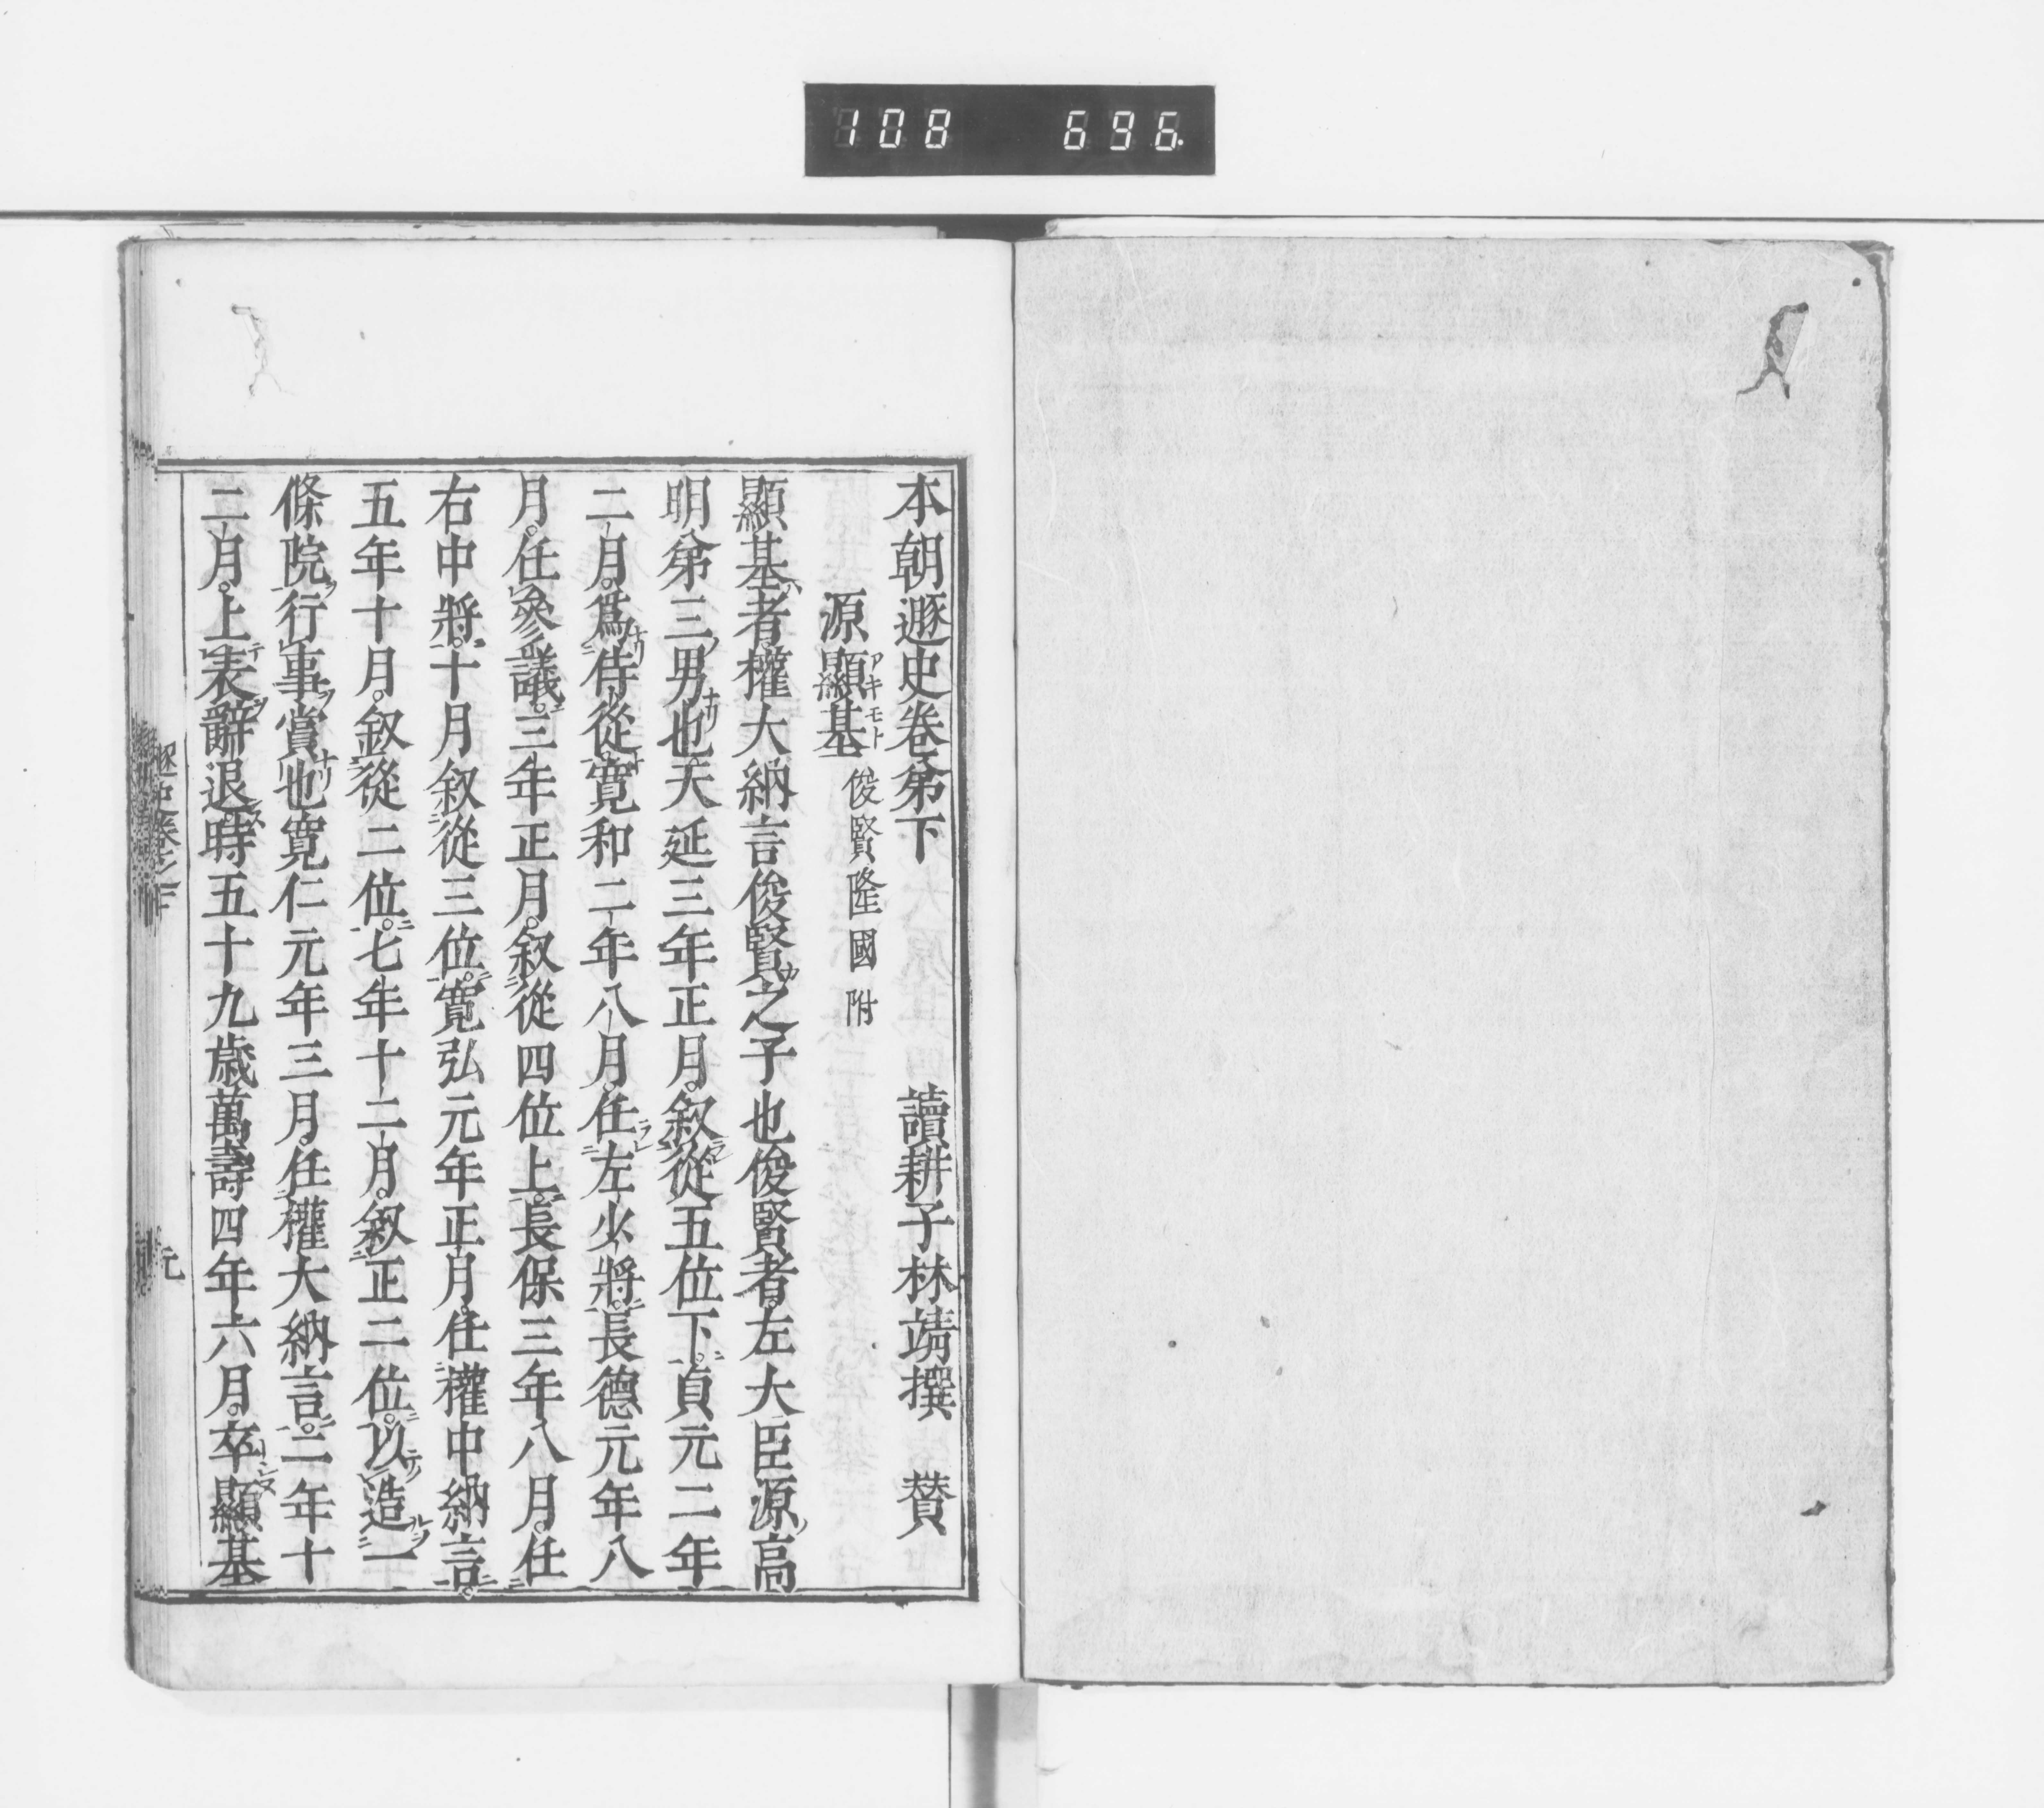 108 696.
本朝遯史卷第下 讀耕子林靖撰 賛
源顯基 俊賢隆國附
アキモト
顯基者權大納言俊賢之子也俊賢者左大臣源高
明第三男也天延三年正月。叙從五位下。貞元二年
二月。爲侍從。寛和二年八月。任左少將。長德元年八
月。任參議。三年正月。叙從四位上。長保三年八月。任
右中將。十月叙從三位。寛弘元年正月。任權中納言。
五年十月。叙從二位。七年十二月。叙正二位。以造一
條院行事賞也寛仁元年三月。任權大納言。二年十
二月。上表辭退。時五十九歳萬壽四年六月。卒顯基
元